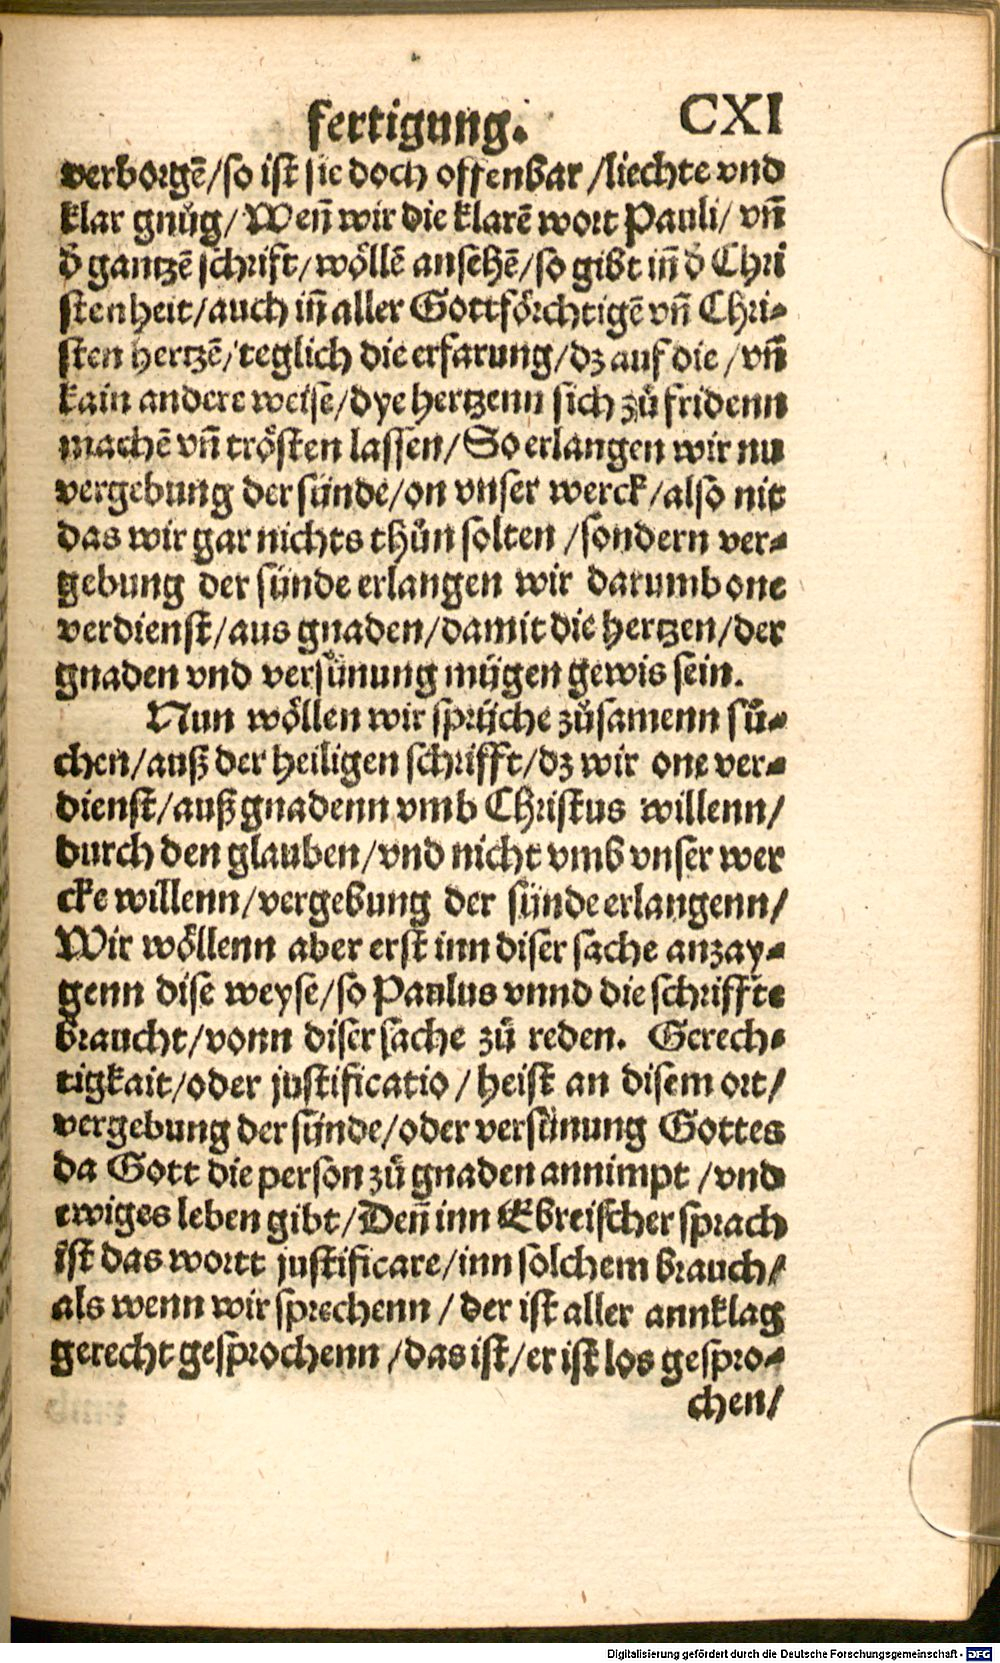 fertigung. CXI
verborgē/so ist sie doch offenbar/liechte vnd
klar gnůg/Weñ wir die klarē wort Pauli/vñ
d̕ gantzē schrift/wöllē ansehē/so gibt iñ d̕ Chri
stenheit/auch iñ aller Gottförchtigē vñ Chri-
sten hertzē/teglich die erfarung/dz auf die/vñ
kain andere weise/dye hertzenn sich zů fridenn
machē vñ trösten lassen/So erlangen wir nu
vergebung der sünde/on vnser werck/also nit
das wir gar nichts thůn solten/sondern ver-
gebung der sünde erlangen wir darumb one
verdienst/aus gnaden/damit die hertzen/der
gnaden vnd versünung mügen gewis sein.
Nun wöllen wir sprüche zůsamenn sů-
chen/auß der heiligen schrifft/dz wir one ver-
dienst/auß gnadenn vmb Christus willenn/
durch den glauben/vnd nicht vmb vnser wer
cke willenn/vergebung der sünde erlangenn/
Wir wöllenn aber erst inn diser sache anzay-
genn dise weyse/so Paulus vnnd die schriffte
braucht/vonn diser sache zů reden. Gerech-
tigkait/oder justificatio/heist an disem ort/
vergebung der sünde/oder versünung Gottes
da Gott die person zů gnaden annimpt/vnd
ewiges leben gibt/Deñ inn Ebreischer sprach
ist das wortt justificare/inn solchem brauch/
als wenn wir sprechenn/der ist aller annklag
gerecht gesprochenn/das ist/er ist los gespro-
chen/
Digitalisierung gefördert durch die Deutsche Forschungsgemeinschaft - DFG